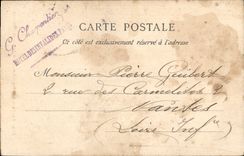 G. Charpentier
CARTE POSTALE
Ce côté est exclusivement réservé à l'adresse
Monsieur Pierre Guibert
2 rue des Carmelites 2
Nantes
Loire Infre